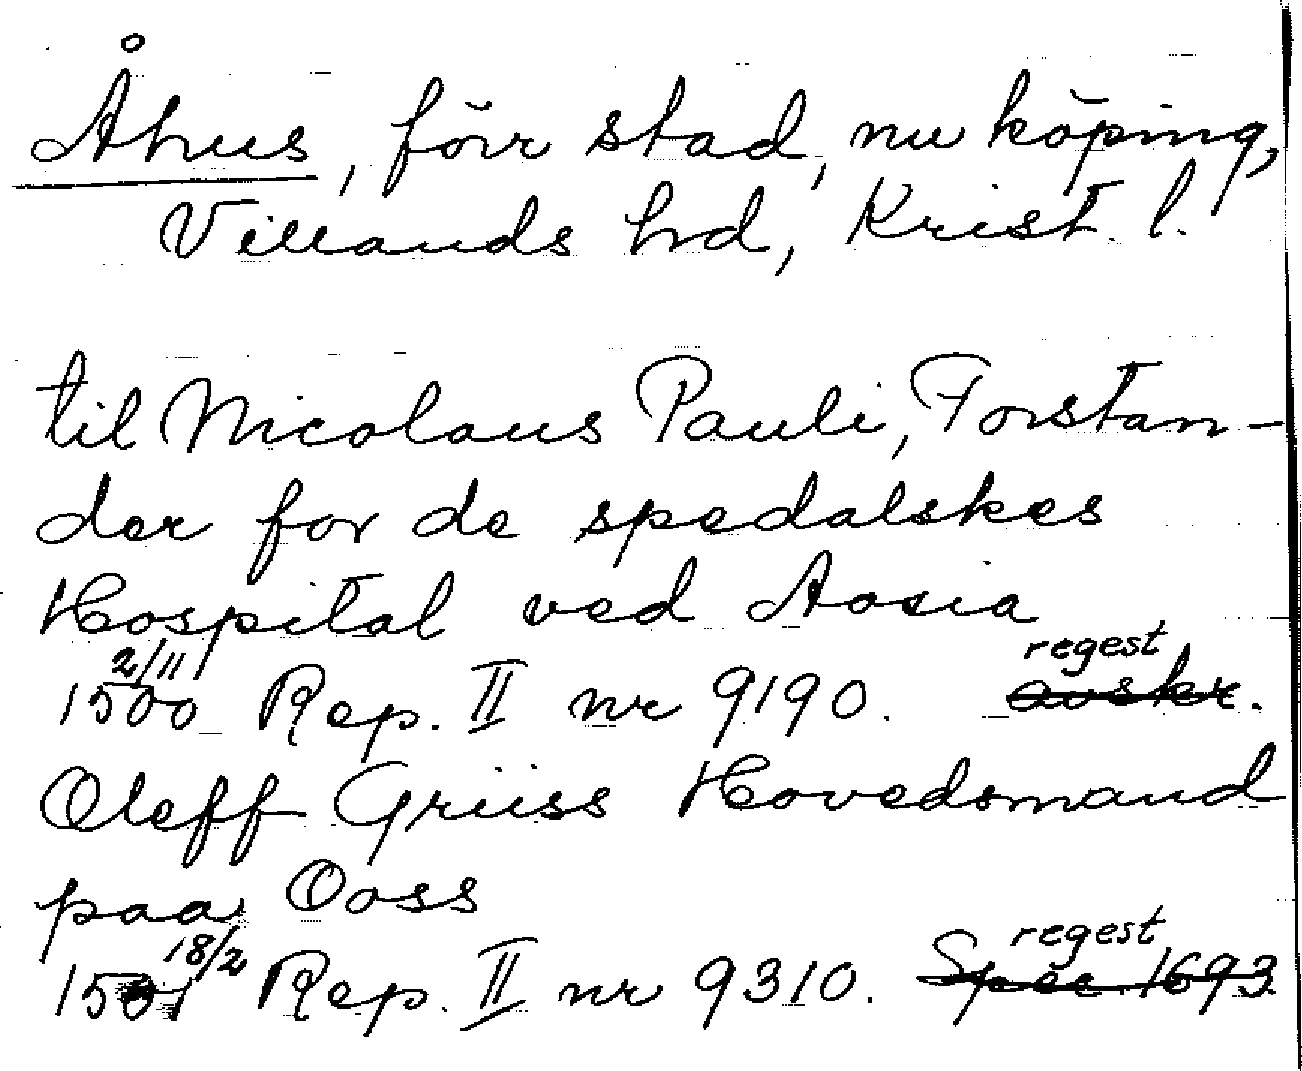 Åhus, förr stad, nu köping,
Villands hrd, Krist. l.
til Nicolaus Pauli, Forstan-
der for de spedalskes
Hospital ved Aosia
1500 2/11 Rep. II nr 9190. avskr. regest
Oleff Griiss Hovedsmand
paa Ooss
1501 18/2 Rep. II nr 9310. Spec. 1693 regest